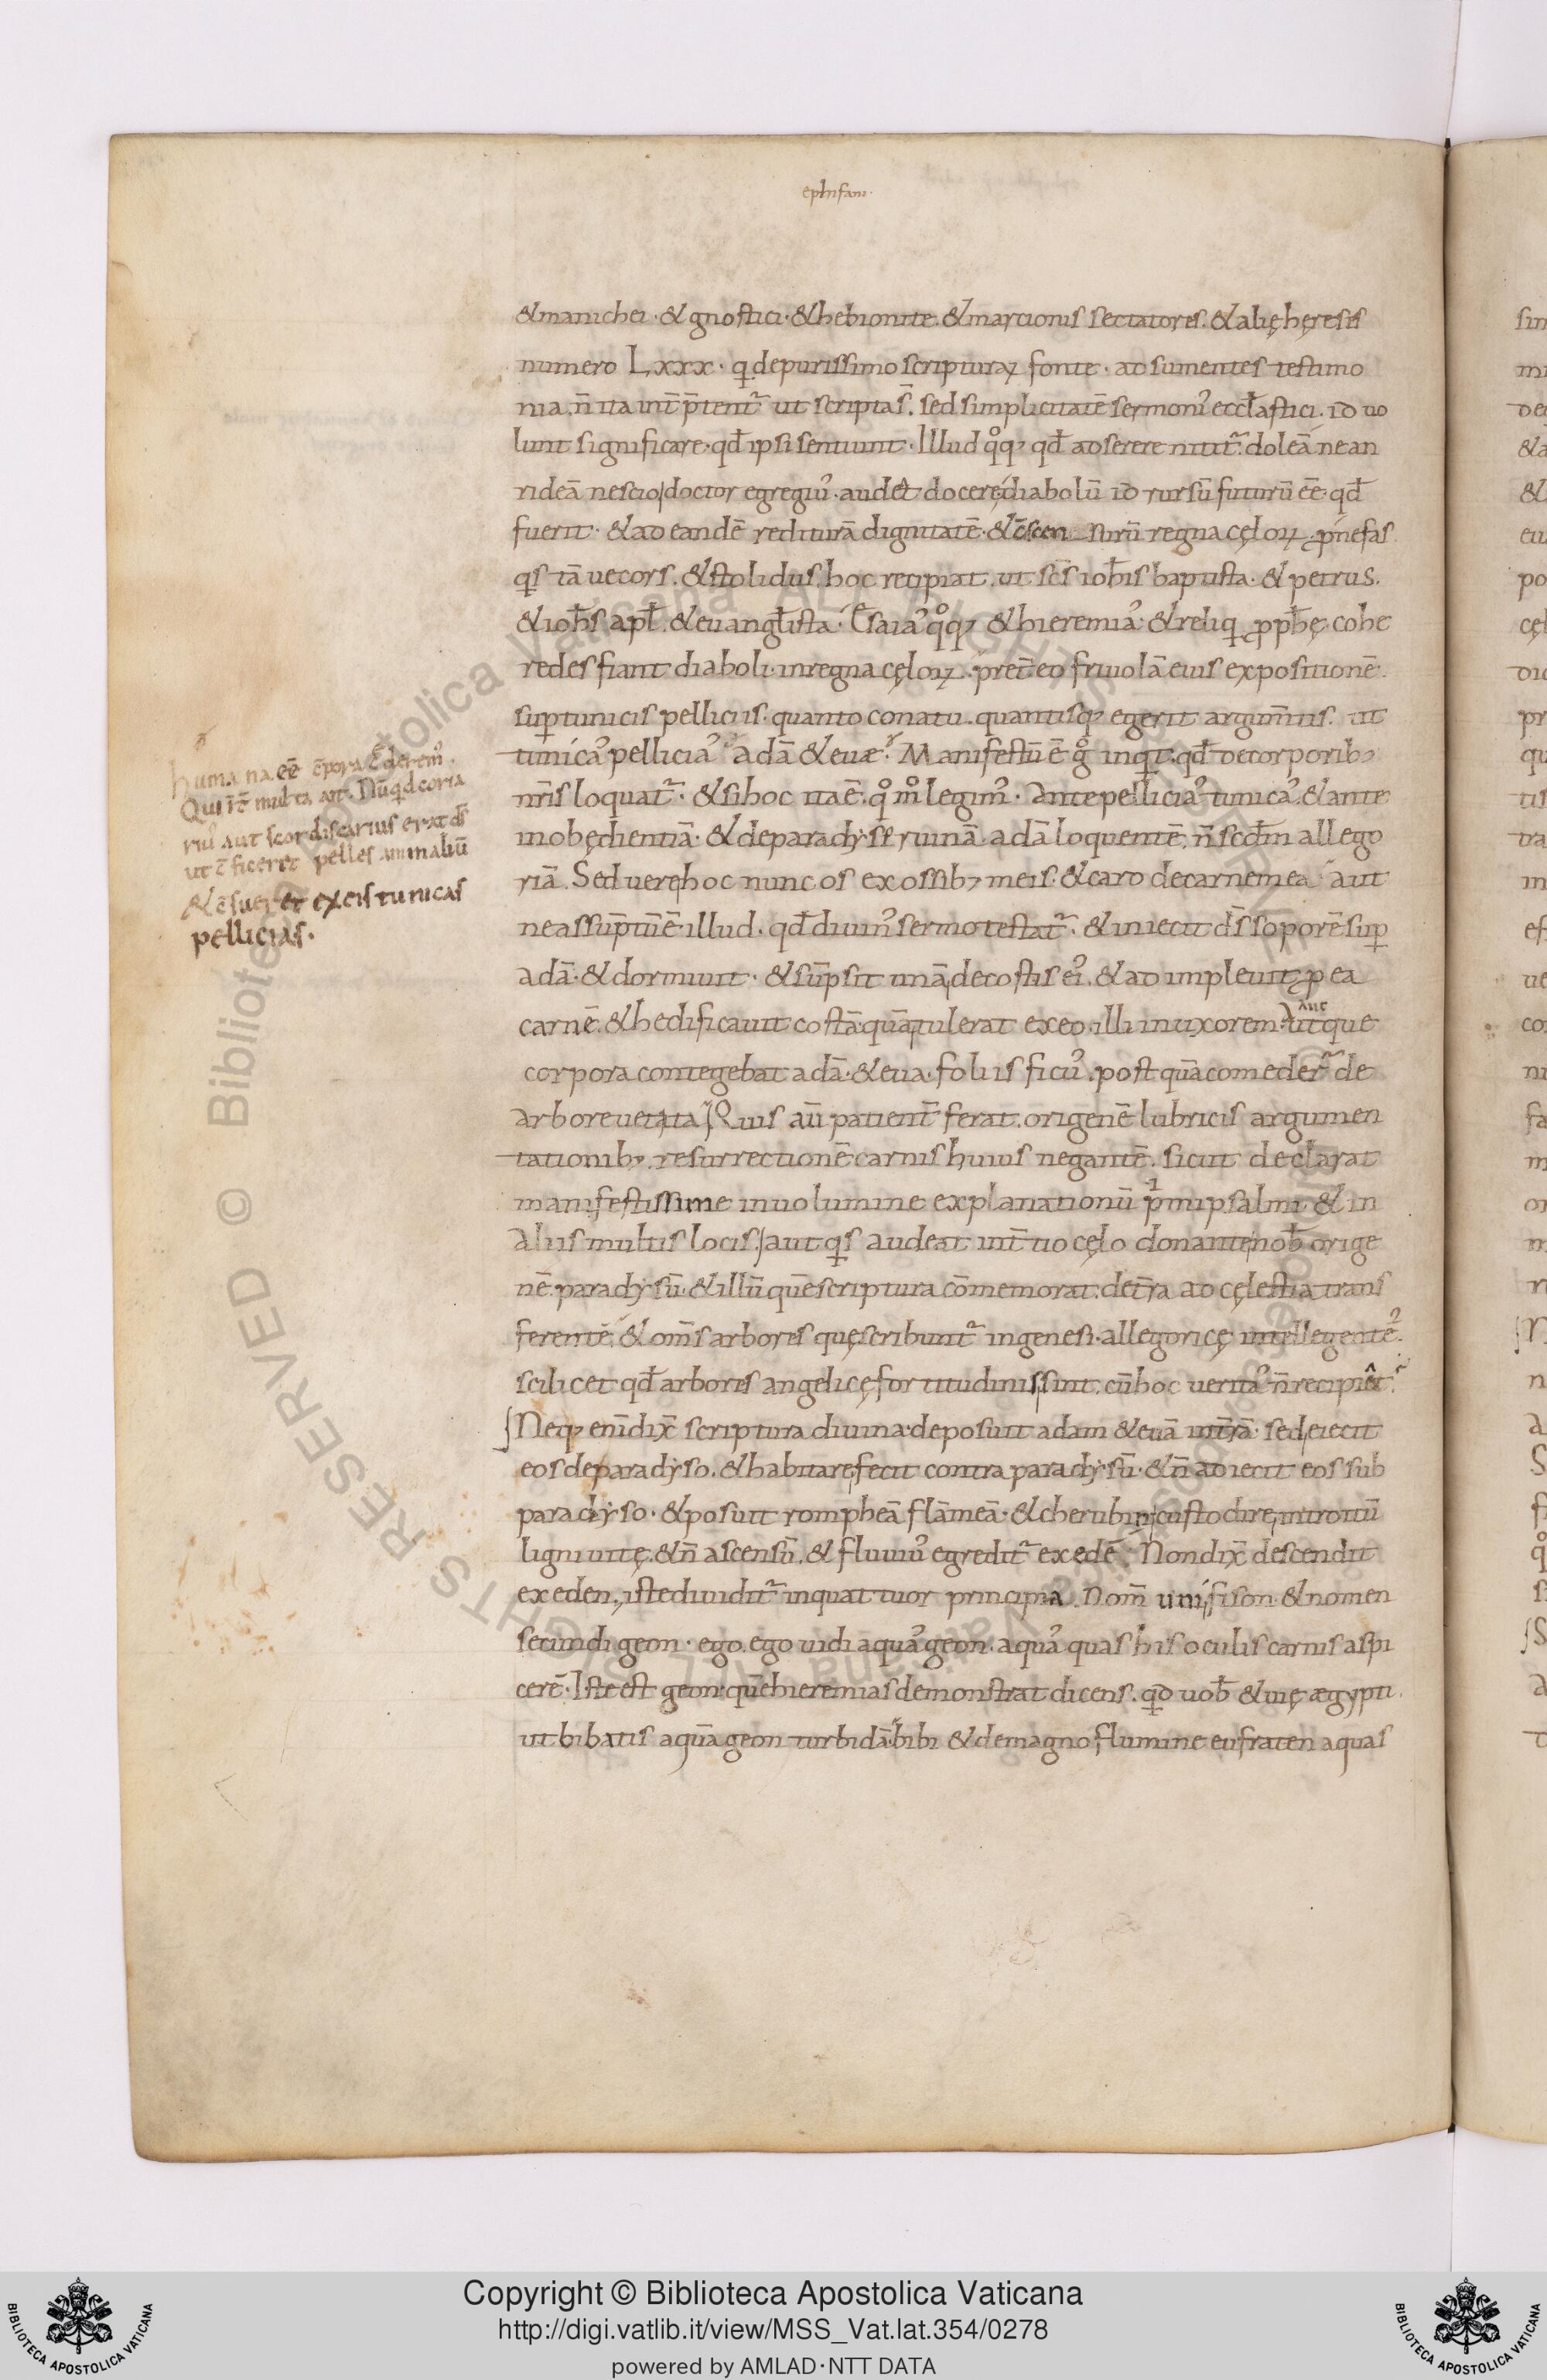 ephifani·
&manichei · & gnostici · &hebionite. &marcionis sectatores. & alię hęreses
numero Lxxx · q̣ depurissimo scripturaꝝ fonte · ad sumentes testimo
nia. n̄ ita int̄ p̄tent᷑ ut scripta s̄. sed simplicitatē sermonꝰ eccl̄astici · id uo
lunt significare · qd̄ ipsi sentiunt · Illud q̊q; qd̄ adserere nitit᷑ doleā ne an
rideā nescio doctor egregiꝰ · audet docere diabolū id rursū futurū eē qd̄
fuerit · & ad eandē rediturā dignitatē · & c̄scen surū regna cęloꝝ. ꝓ nefas
qs tā uecors. & stolidus. hoc recipiat. ut sc̄s ioh̄is baptista. & petrus.
& ioh̄s apl̄. & euangl̄ista · Esaiaꝰ q̊q; & hieremiaꝰ & reliq ꝓph̄ę cohe
redes fiant diaboli · inregna cęloꝝ. pret̄ eo friuolā eius expositionē.
suꝑ tunicis pelliciis. quanto conatu. quantisq; egerit argum̄tis. ut
tunicaꝰ pelliciaꝰ adā & euæ · Manifestū ē g̊ inquit. qd̄ decorporib;
nr̄is loquat᷑ · & si hoc ita ē. q̊ m̊ legimꝰ · Ante pelliciaꝰ tunicaꝰ & ante
inobędientiā · & de paradysi ruinā adā loquentē. n̄ scdm allego
riā. Sed uere hoc nunc os ex ossib; meis. & caro decarne mea aut
ne assūptū ē illud. qd̄ diuinꝰ sermo testat᷑. & iniecit d̄s soporē suꝑ
adā · & dormiuit · & sūpsit unā decostis eiꝰ. & ad impleuit ꝓ ea
carnē. & hedificauit costā quā tulerat exeo · illi inuxorem aut
ut que
corpora contegebat adā · & eua · foliis ficuꝰ. postquā comeder᷑ de
arbore uetita Quis aū patient̄ ferat. origenē lubricis argumen
tationib; resurrectionē carnis huius negantē. sicut declarat
manifestissime inuolumine explanationū p̄mi psalmi & in
aliis multis locis aut qs audeat int̄ tio cęlo donante nob̄ orige
nē paradysū · & illū quē scriptura cōmemorat. det̄ra ad cęlestia trans
ferentē & om̄s arbores quę scribunt᷑ ingenesi · allegoricę intellegentē
scilicet qd̄ arbores angelicę fortitudinis sint. cū hoc ueritaꝰ n̄ recipiat.
Neq; enī dix̄ scriptura diuina deposuit adam & euā int̄rā sed eiecit
eos deparadyso. & habitare fecit contra paradysū · & n̄ adiecit eos sub
paradyso · & posuit rompheā flāmeā · & cherubin custodire introitū
ligni uitę. & n̄ ascensū. & fluuiuꝰ egredit᷑ ex edē · Non dix̄ descendit
ex eden. iste diuidit᷑ inquattuor principia. nom̄ uni fison & nomen
secundi geon · ego. ego uidi aquaꝰ geon · aquaꝰ quas his oculis carnis aspi
cerē · Iste est geon quē hieremias demonstrat dicens. qd uob̄ & uię ægypti.
ut bibatis aquā geon turbidā bibi & de magno flumine eufraten aquas
humana eē c̄pora c̄derem̊ ·
Qui īt̄ multa ait · Nūqd coria
riuꝰ aut scordiscarius erat d̄s
ut c̄ficeret pelles animaliū
& c̄suer et ex eis tunicas
pellicias ·
Copyright © Biblioteca Apostolica Vaticana
http://digi.vatlib.it/view/MSS_Vat.lat.354/0278
powered by AMLAD·NTT DATA